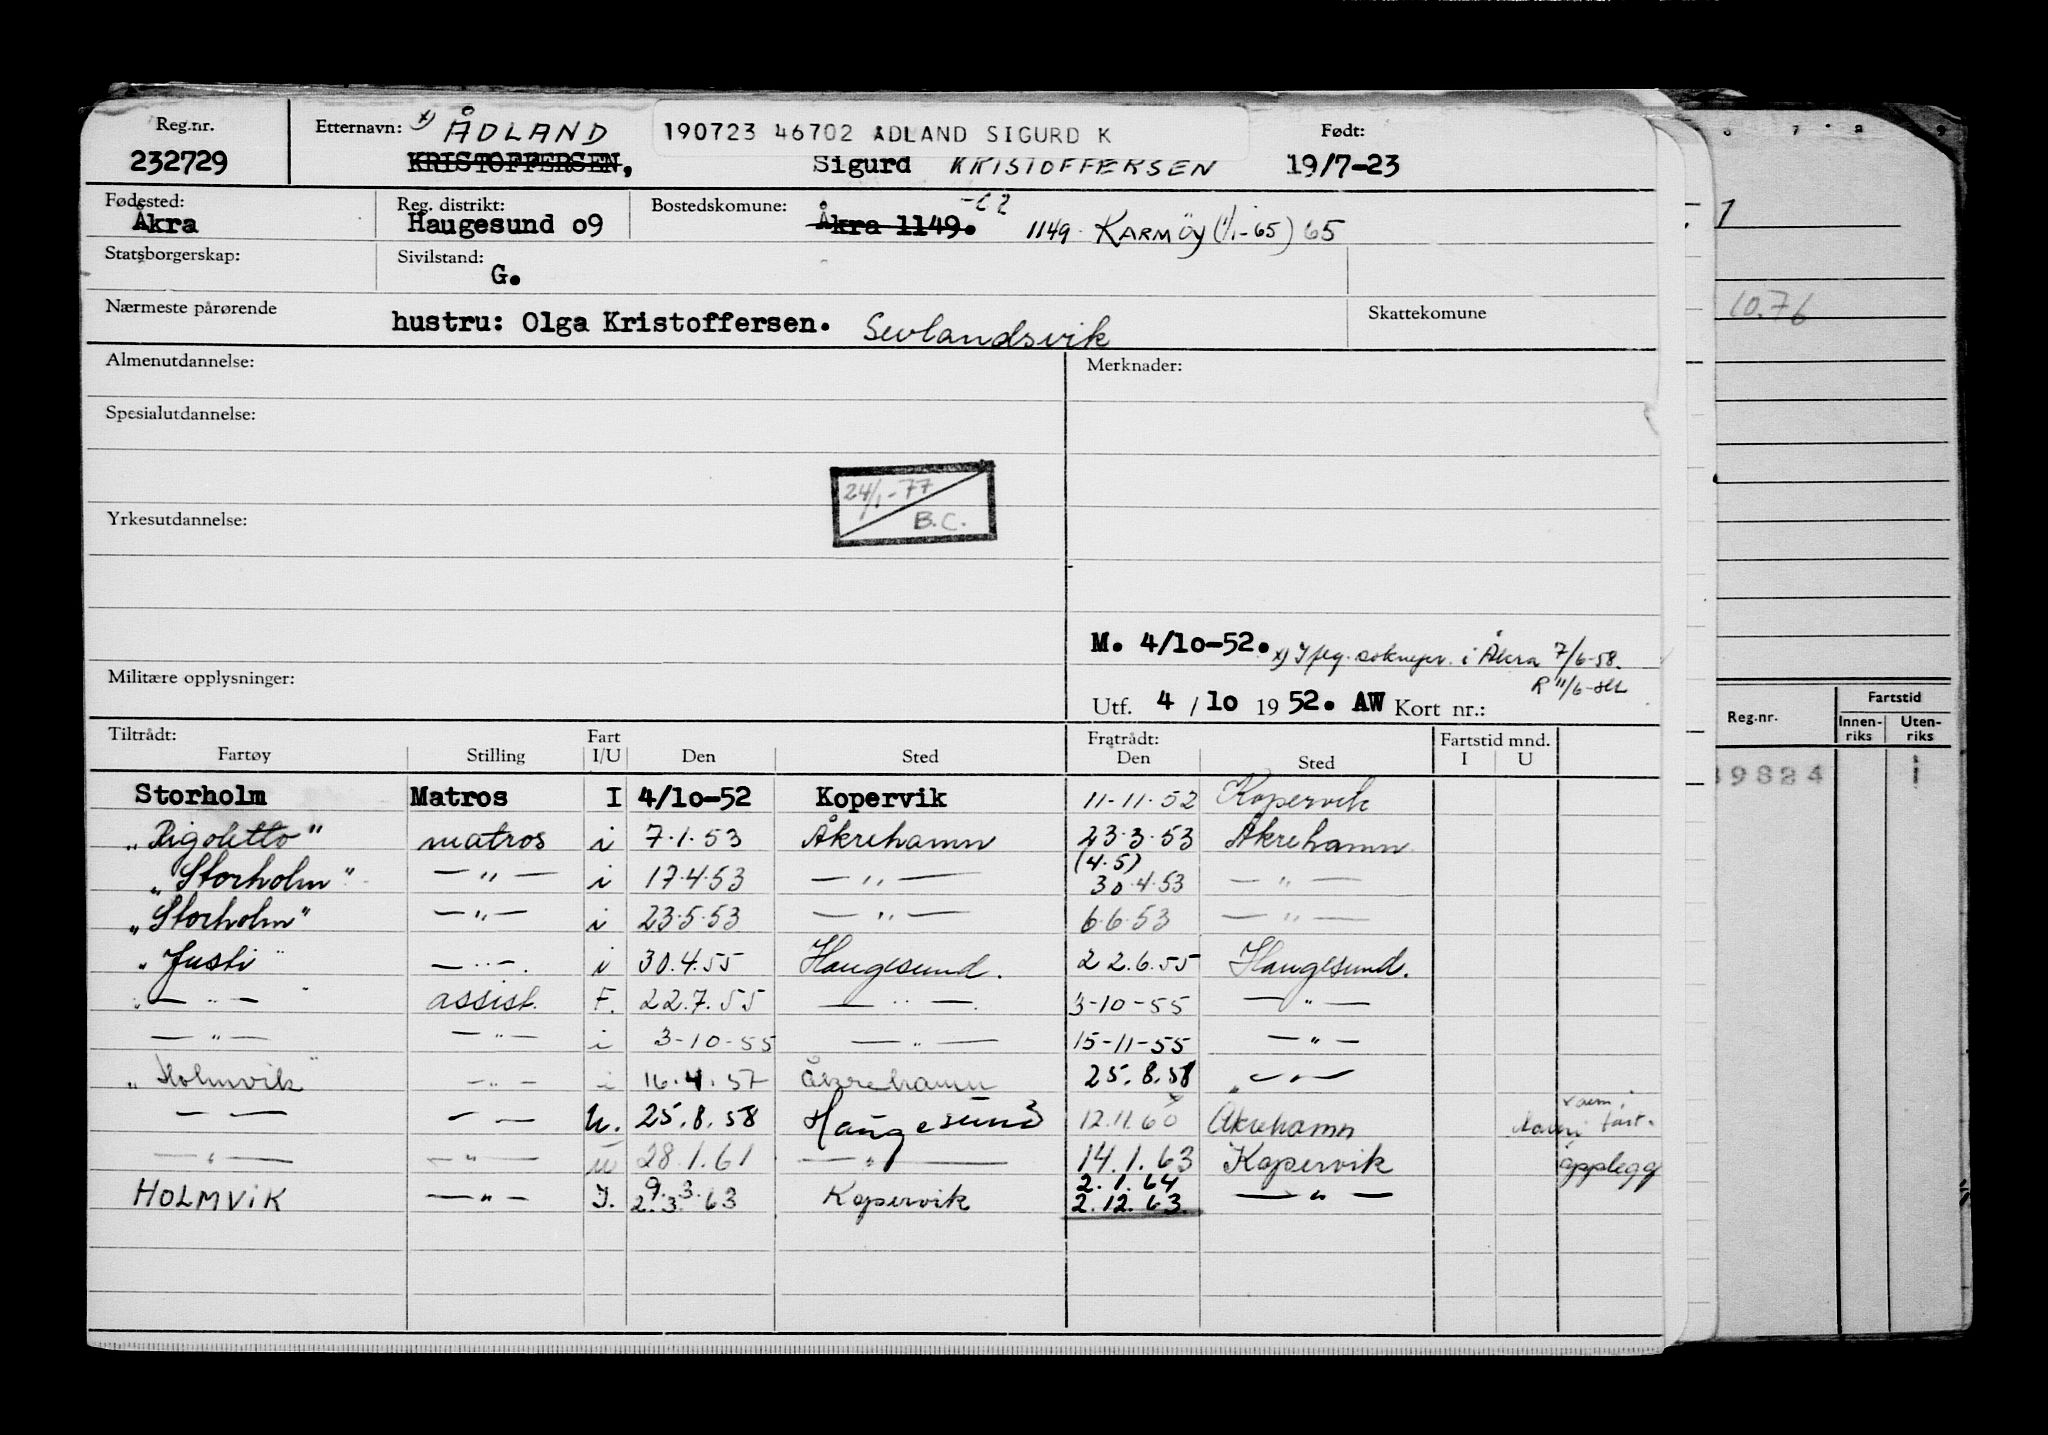 Reg.nr. Etternavn: x) ÅDLAND 190723 46702 ADLAND SIGURD K Født:
232729 KRISTOFFERSEN, Sigurd KRISTOFFERSEN 19/7-23
Fødested: Reg. distrikt: Bostedskomune:
Åkra Haugesund o9 Åkra 1149. 1149 KARMØY (1/1-65) 65
Statsborgerskap: Sivilstand:
G.
Nærmeste pårørende hustru: Olga Kristoffersen. Sevlandsvik Skattekomune
Almenutdannelse: Merknader:
Spesialutdannelse:
24/1-77
B.C.
Yrkesutdannelse:
M. 4/1o-52. x) Iflg. i Åkra 7/6-58.
Militære opplysninger: R 11/6-
Utf. 4 / 1o 19 52. AW Kort nr.:
Tiltrådt: Fart Fratrådt: Fartstid mnd.
Fartøy Stilling I/U Den Sted Den Sted I U
Storholm Matros I 4/1o-52 Kopervik 11-11-52 Kopervik
"Rigoletto" matros i 7.1.53 Åkrehamn 23.3.53 Åkrehamn
(4.5)
"Storholm" — " — i 17.4.53 — " — 30.4.53 — " —
"Storholm" — " — i 23.5.53 — " — 6.6.53 — " —
"Justi" — " — i 30.4.55 Haugesund. 22.6.55 Haugesund.
" — " — " assist. F. 22.7.55 — " — 3-10-55 — " —
— " — — " — i 3-10-55 — " — 15-11-55 — " —
"Holmvik" — " — i 16.4.57 Åkrehamn 25.8.58 — " —
— " — — " — U. 25.8.58 Haugesund 12.11.60 Åkrehamn
— " — — " — u 28.1.61 — " — 14.1.63 Kopervik opplegg
9.3. 2.1.64
HOLMVIK — " — I. 2.3.63 Kopervik 2.12.63 — " —
7
10.76
Reg.nr. Fartstid
Innen-riks Uten-riks
39824 1